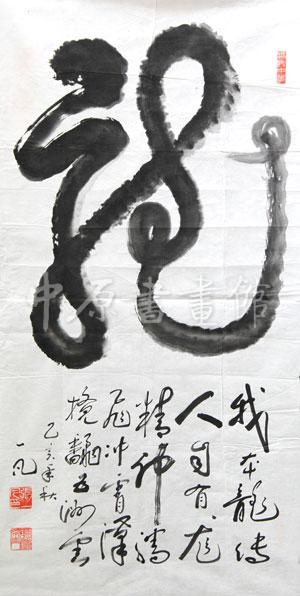 龍
我本龍傳
人自有龙
精神腾
飛冲霄漢
搅翻五洲雲
乙亥年秋
一凡
中原書畫館